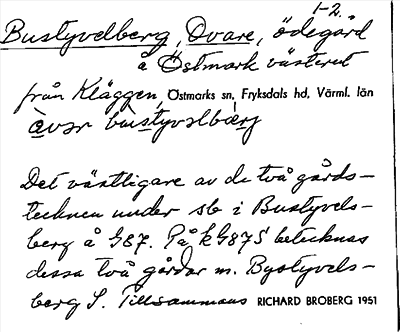 1-2.
Bustyvelberg, Ovare, ödegård
å Östmark västerut
från Kläggen, Östmarks sn, Fryksdals hd, Värml. län
Det västligare av de två gårds-
tecknen under sb i Bustyvels-
berg å G87. På kG87S betecknas
dessa två gårdar m. Bystyvels-
berg S. Tillsammans RICHARD BROBERG 1951